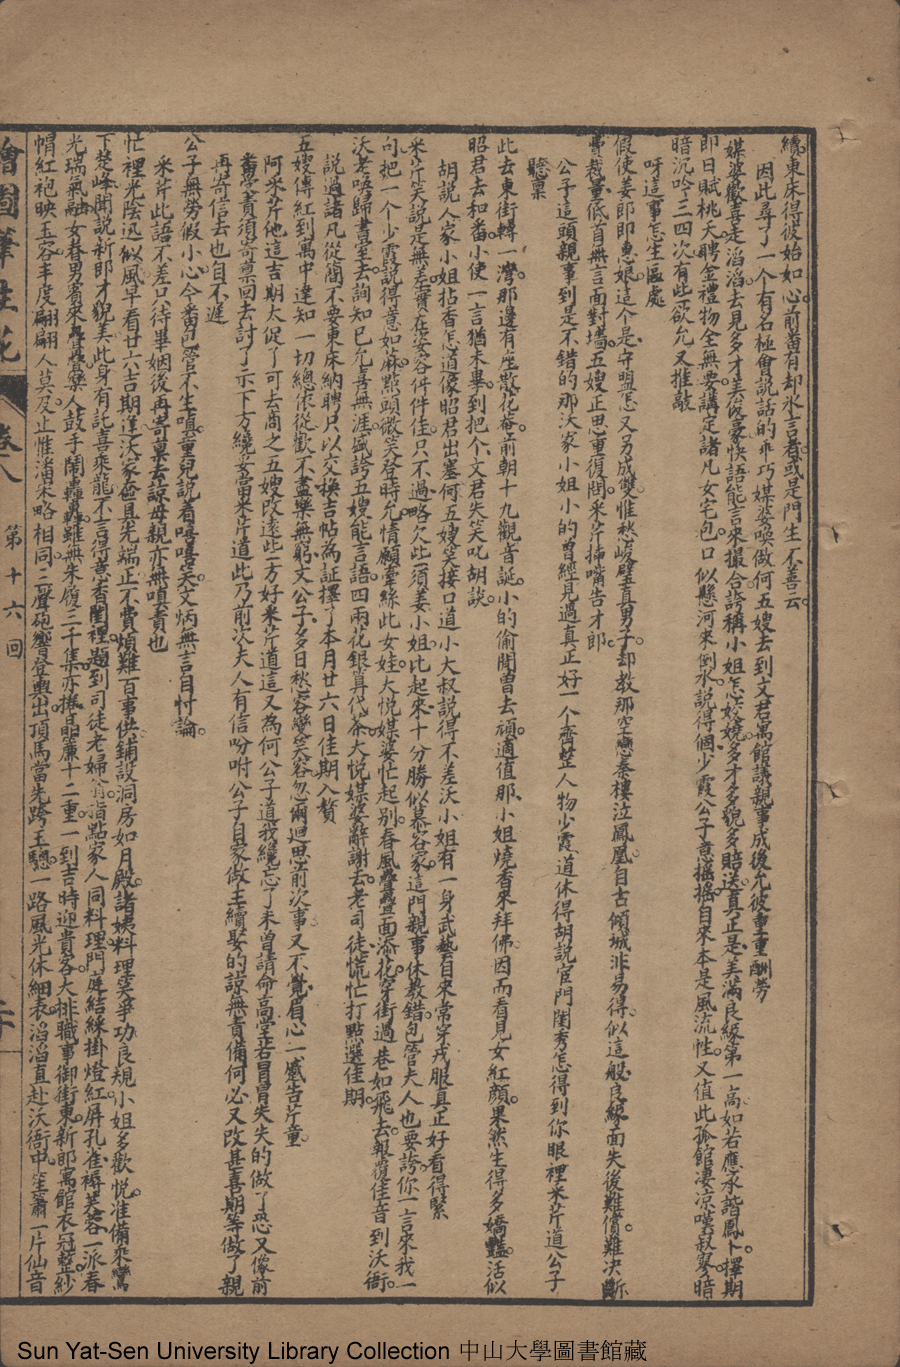 續東床得彼始如心前畨有却氷言者或是門生不善云
因此尋了一个有名極會説話的乖巧媒婆喚做何五嫂去到文君寓館議親事成後允彼重重酬劳
媒婆歡喜走滔滔去見多才姜俊豪快語能言來撮合誇稱小姐怎妖嬈多才多貌多賠送真正是美滿良緣第一高如若應承諧鳳卜擇期
即日賦桃夭聘金禮物全無要講定諸凡女宅包口似懸河來倒水說得個少霞公子意搖搖自來本是風流性又值此孤館凄凉嘆寂寥暗
暗沉吟三四次有些欲允又推敲
呀這事怎生區處
假使姜郎即惠娘這个是守盟怎又另成雙惟愁峻壁直男子却教那空戀秦樓泣鳳凰自古傾城非易得似這般良緣面失後難償難决斷
費裁量低首無言面對墻五嫂正思重復問米芹插嘴告才郎
公子這頭親事到是不錯的那沃家小姐小的曾經見過真正好一个齊整人物少霞道休得胡說官門閨秀怎得到你眼裡米芹道公子
聽禀
此去東街轉一灣那邊有座散花菴前朝十九觀音誕小的偷閒曾去頑適值那小姐燒香來拜佛因而看見女紅顔果然生得多嬌豔活似
昭君去和番小使一言猶未畢到把个文君失笑叱胡談
胡説人家小姐拈香怎道像昭君出塞何五嫂笑接口道小大叔説得不差沃小姐有一身武藝自來常穿戎服真正好看得緊
米芹笑説是無差實在姿容件件佳只不過略欠些須姜小姐比起來十分勝似慕容家這門親事休教錯包管夫人也要誇你一言來我一
句把一个少霞説得意如蔴點頭微笑登時允情願牽絲此女娃大悦媒婆忙起别春風疊疊面添花穿街過巷如飛去報覆佳音到沃衙
沃老唔歸書室去詢知已允喜無涯盛誇五嫂能言語四兩花銀算代茶大悦媒婆辭謝去老司徒慌忙打點選佳期
説過諸凡從簡不要東床納聘只以交換吉帖為証擇了本月廿六日佳期入贅
五嫂傳紅到寓中達知一切總依從歡不盡樂無窮文公子多日愁容變笑容忽爾廻思前次事又不覺眉心一慼告芹童
阿米芹他這吉期太促了可去商之五嫂改遠些方好米芹道這又為何公子道我纔忘了未曾請命高堂若冒冒失失的做了恐又像前
畨受責須寄禀回去討了示下方纔安當米芹道此乃前次夫人有信吩咐公子自家做主續娶的諒無責備何必又改甚喜期等做了親
再寄信去也自不遲
公子無勞假小心今畨包管不生嗔童兒説着嘻嘻笑文炳無言自忖論
米芹此語不差只待畢姻後再寄禀去諒母親亦無嗔責也
忙裡光陰迅似風早看廿六吉期逢沃家奩具先端正不費煩難百事供鋪設洞房如月殿諸姨料理笑爭功良規小姐多歡悦准備乘鸞
下楚峰聞説新郎才貌美此身有託喜乘龍不言得意香閨裡題到司徒老婦翁指點家人同料理門庭結綵掛燈紅屏孔雀褥芙蓉一派春
光瑞氣融女眷男賓來疊疊樂人鼓手鬧轟轟雖無朱履三千集亦捲晶簾十二重一到吉時迎貴客大排職事御街東新郎寓館衣冠整紗
帽紅袍映玉容丰度翩翩人莫及止惟潘宋略相同三聲砲響登輿出頂馬當先跨玉驄一路風光休細表滔滔直赴沃衙中笙簫一片仙音
繪圖筆生花 卷八 第十六回
Sun Yat-Sen University Library Collection 中山大學圖書館藏